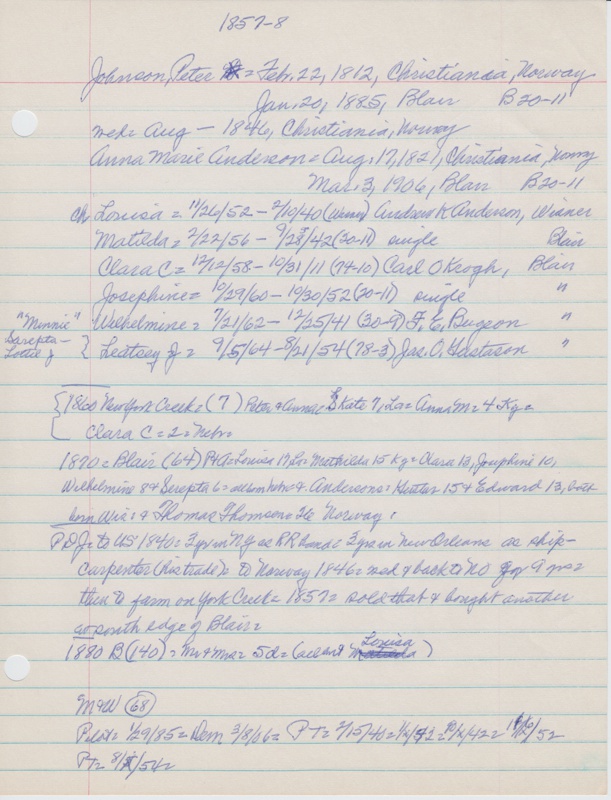 1857-8
Johnson, Peter = Feb. 22, 1812, Christiania, Norway
Jan. 20, 1885, Blair B20-11
med = Aug - 1846, Christiania, Norway
Anna Marie Anderson = Aug. 17, 1821, Christiania, Norway
Mar. 3, 1906, Blair B20-11
ch Louisa = 11/26/52 - 2/10/40 (Winner) Andrew K Anderson, Winner
Matilda = 2/22/56 - 9/28/42 (20-11) single Blair
Clara C = 12/12/58 - 10/31/11 (74-10) Carl O Krogh, Blair
Josephine = 10/29/60 - 10/30/52 (20-11) single "
"Minnie" Wilhelmine = 7/21/62 - 12/25/41 (30-9) F. E. Bugeon "
Sarepta - Lottie J } Leatsey J = 9/5/64 - 8/21/54 (78-3) Jas. O. Gustason "
{ 1860 New York Creek = (7) Peter & Anna = Kate 7, La = Anna M = 4 Ky =
Clara C = 2 = Nebr =
1870 = Blair (64) P & A = Louisa 17 La = Mathilda 15 Ky = Clara 13, Josephine 10,
Wilhelmine 8 & Serepta 6 = all born Nebr = &. Andersons = Hester 15 & Edward 13, both
born Wis = & Thomas Thomson = 26 Norway.
P D J = to US 1840 = 3 yrs in NY as RR hand = 3 yrs in New Orleans as ship-
carpenter (his trade) = to Norway 1846 = med & back to NO for 9 yrs =
then to farm on York Creek = 1857 = sold that & bought another
so south edge of Blair =
1880 B (140) = Mr & Mrs = 5 d = (all but Louisa)
M & W (68)
P = 1/29/85 = Dem 3/8/06 = PT = 2/15/40 = /42 = 10/2/42 = /52
PT = 8/ /54 =